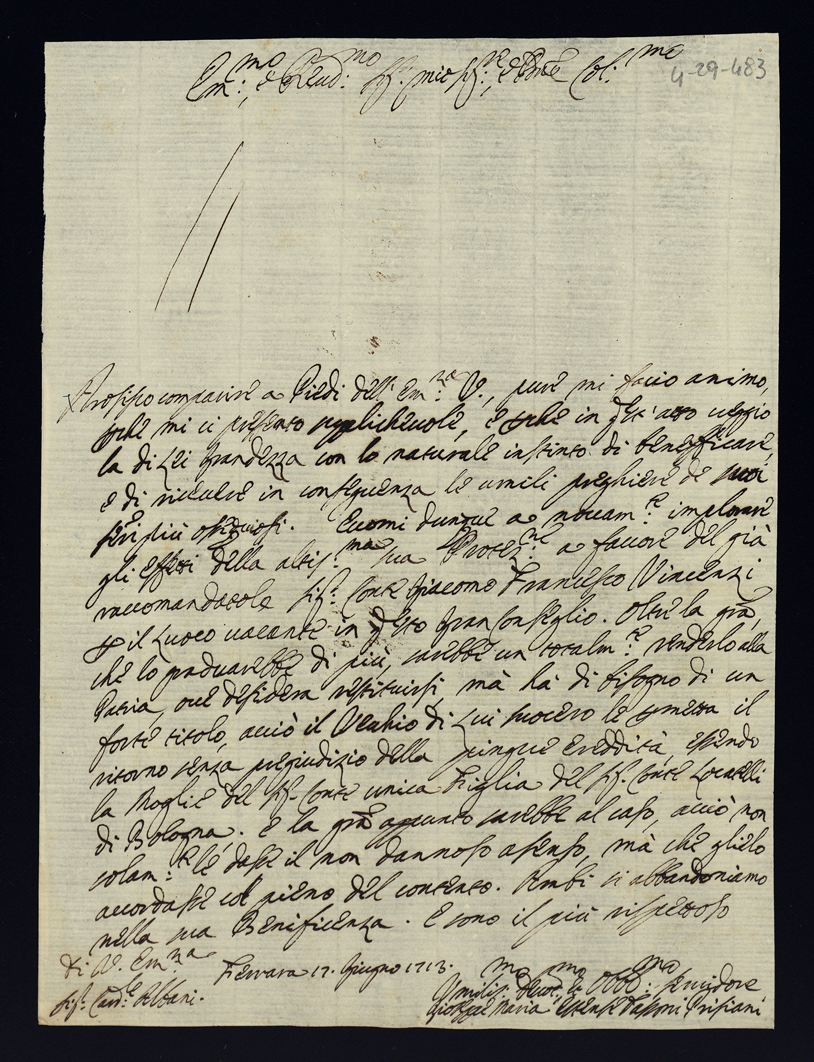 4-29-483
Em:mo, e Reud:mo Sig: mio Sig:re, e Pne Col:mo
Arrossisco comparire a Piedi dell' Em:za V., pure mi faccio animo,
perche mi ci presento supplichevole, e perche in quest' atto veggio
la di Lei grandezza con lo naturale instinto di beneficare,
e di ricevere in conseguenza le umili preghiere de suoi
seri più ossequiosi. Eccomi dunque a nouam:te implorare
gli effetti della altis:ma sua Protez:ne a fauore del già
raccomandatole Sig: Conte Giacomo Francesco Vincenzi
p il Luoco uacante in questo Gran Consiglio. Oltre la gra,
che lo graduarebbe di più, sarebbe un totalm:te renderlo alla
Patria, oue desidera restituirsi mà hà di bisogno di un
forte titolo, acciò il Vechio di Lui suocero le permetta il
ritorno senza pregiudizio della pingue eredità, essendo
la Moglie del Sig: Conte unica Figlia del Sig: Conte Locatelli
di Bologna. E la gra appunto sarebbe al caso, acciò non
solam:te le dasse il non dannoso assenso, mà che glielo
accordasse col pieno del contento. Ambi ci abbandoniamo
nella sua Benificenza. E sono il più rispettoso
Di V. Em:za Ferrara 17. Giugno 1713.
Sig: Card:e Albani.
Umilis:mo Deuot:mo et Obbg:mo Seruidore
Gioseppe Maria Estense Tassoni Prisciani